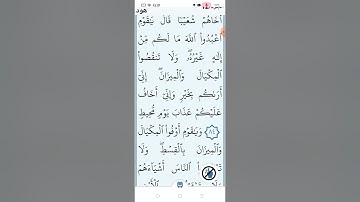 هود
أَخَاهُمْ شُعَيْبًا قَالَ يَٰقَوْمِ
ٱعْبُدُوا۟ ٱللَّهَ مَا لَكُم مِّنْ
إِلَٰهٍ غَيْرُهُۥ وَلَا تَنقُصُوا۟
ٱلْمِكْيَالَ وَٱلْمِيزَانَ إِنِّىٓ
أَرَىٰكُم بِخَيْرٍ وَإِنِّىٓ أَخَافُ
عَلَيْكُمْ عَذَابَ يَوْمٍ مُّحِيطٍ
﴿٨٤﴾ وَيَٰقَوْمِ أَوْفُوا۟ ٱلْمِكْيَالَ
وَٱلْمِيزَانَ بِٱلْقِسْطِ وَلَا
ٱلنَّاسَ أَشْيَآءَهُمْ